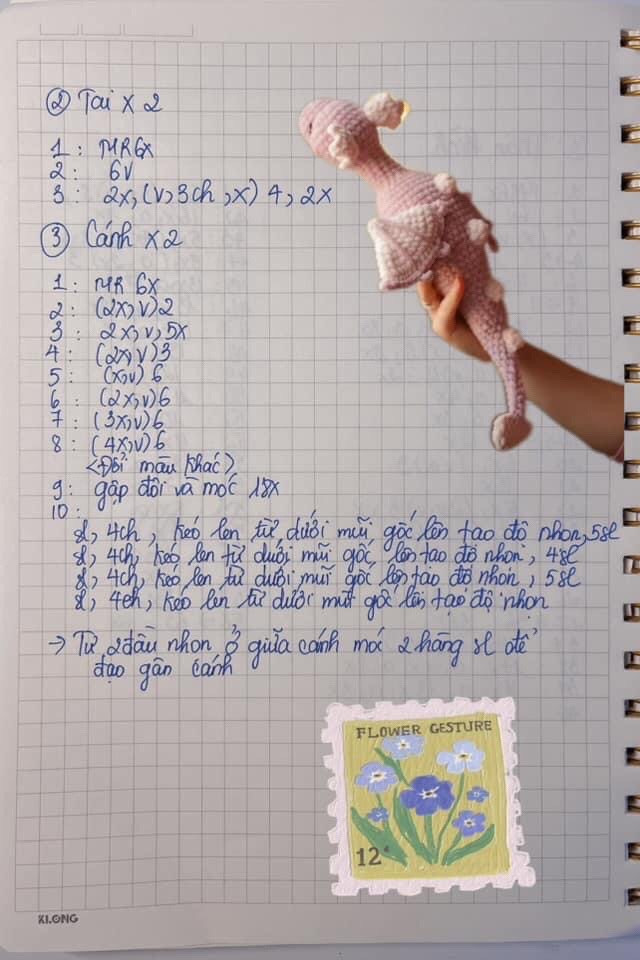 ② Tai x 2
1: MR6x
2: 6v
3: 2x, (v, 3ch, x) 4, 2x
③ Cánh x 2
1: MR 6x
2: (2x, v) 2
3: 2x, v, 5x
4: (2x, v) 3
5: (x, v) 6
6: (2x, v) 6
7: (3x, v) 6
8: (4x, v) 6
<Đổi màu khác>
9: gập đôi và móc 18x
10:
sl, 4ch, kéo len từ dưới mũi gốc lên tạo độ nhọn, 5sl
sl, 4ch, kéo len từ dưới mũi gốc lên tạo độ nhọn, 4sl
sl, 4ch, kéo len từ dưới mũi gốc lên tạo độ nhọn, 5sl
sl, 4ch, kéo len từ dưới mũi gốc lên tạo độ nhọn
→ Từ 2 đầu nhọn ở giữa cánh móc 2 hàng sl để
đạo gân cánh
FLOWER GESTURE
12
KLONG